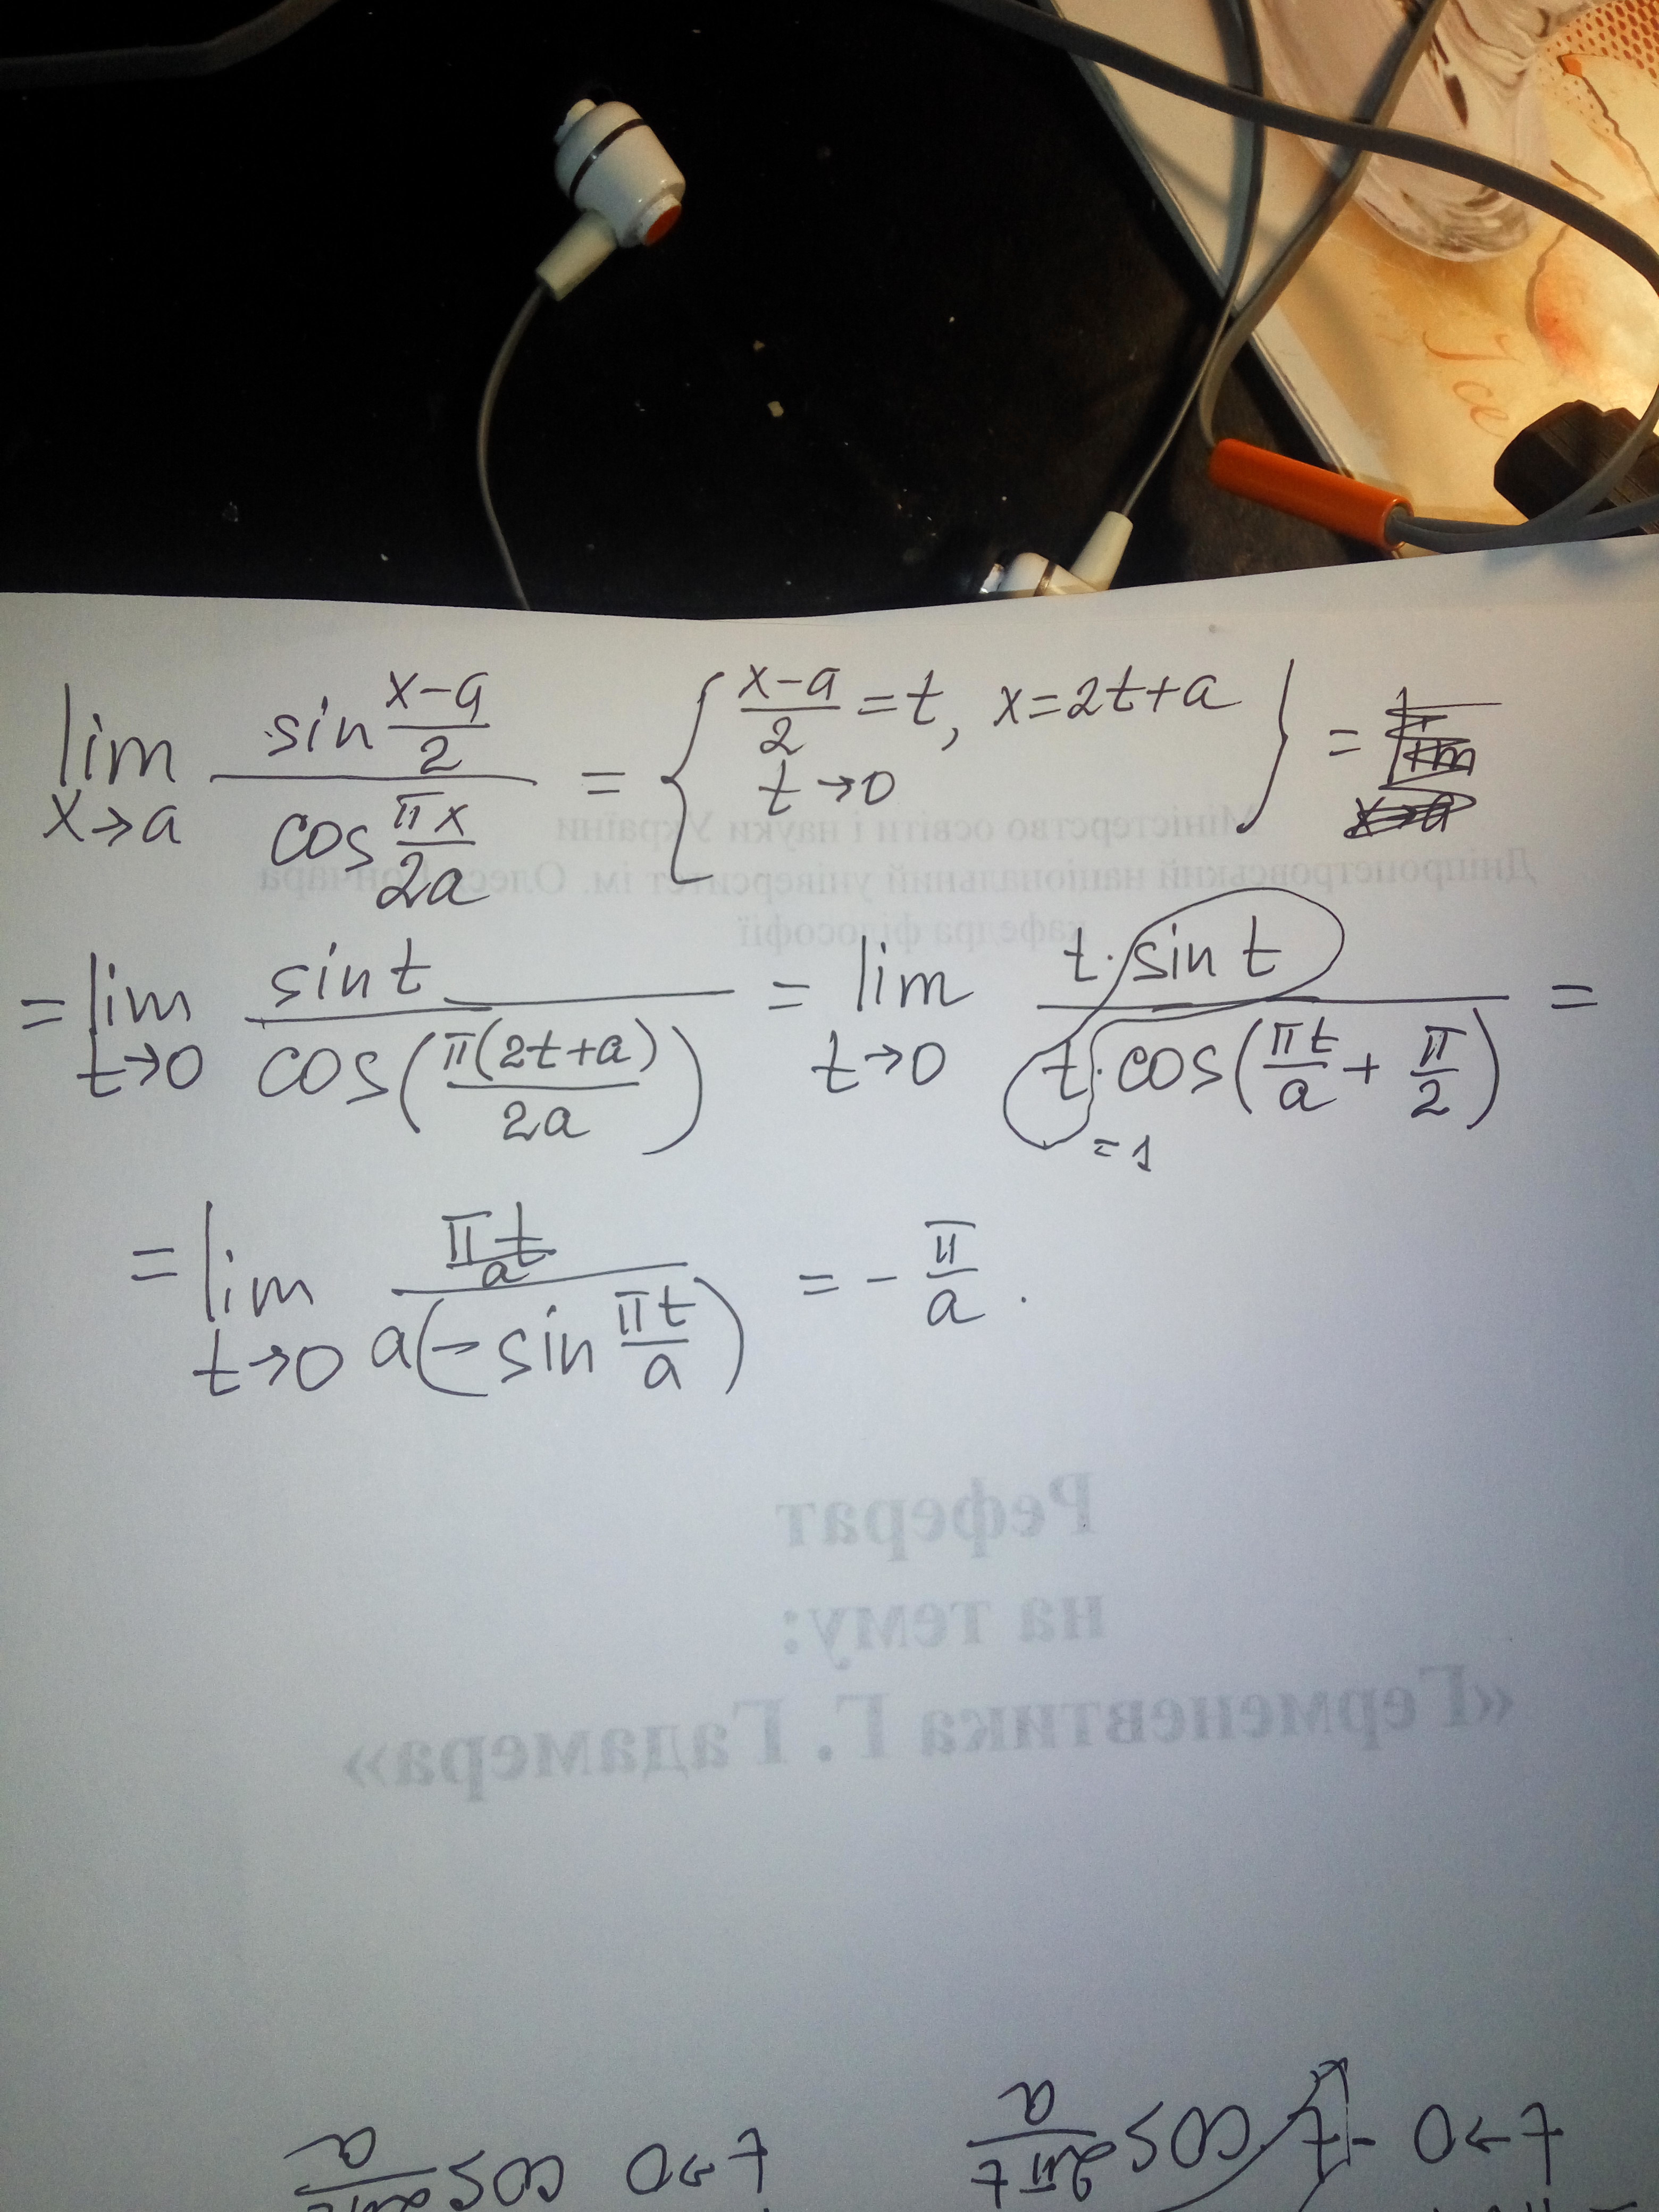 Ice
lim x→a sin (x-a)/2 / cos πx/2a = { (x-a)/2 = t, x=2t+a t→0 } =
Міністерство освіти і науки України
Дніпропетровський національний університет ім. Олеся Гончара
кафедра філософії
= lim t→0 sin t / cos(π(2t+a)/2a) = lim t→0 t · sin t / t · cos(πt/a + π/2) =
= 1
= lim t→0 πt/a / a(- sin πt/a) = - π/a .
Реферат
на тему:
«Герменевтика Г. Гадамера»